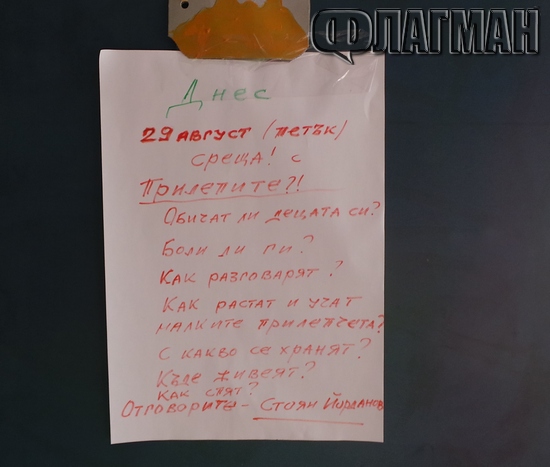 ФЛАГМАН
Днес
29 АВГУСТ (ПЕТЪК)
СРЕЩА! с
ПРИЛЕПИТЕ?!
ОБИЧАТ ЛИ ДЕЦАТА СИ?
БОЛИ ЛИ ГИ?
КАК РАЗГОВАРЯТ?
КАК РАСТАТ И УЧАТ
МАЛКИТЕ ПРИЛЕПЧЕТА?
С КАКВО СЕ ХРАНЯТ?
КЪДЕ ЖИВЕЯТ?
КАК СПЯТ?
ОТГОВОРИТЕ - СТОЯН ЙОРДАНОВ